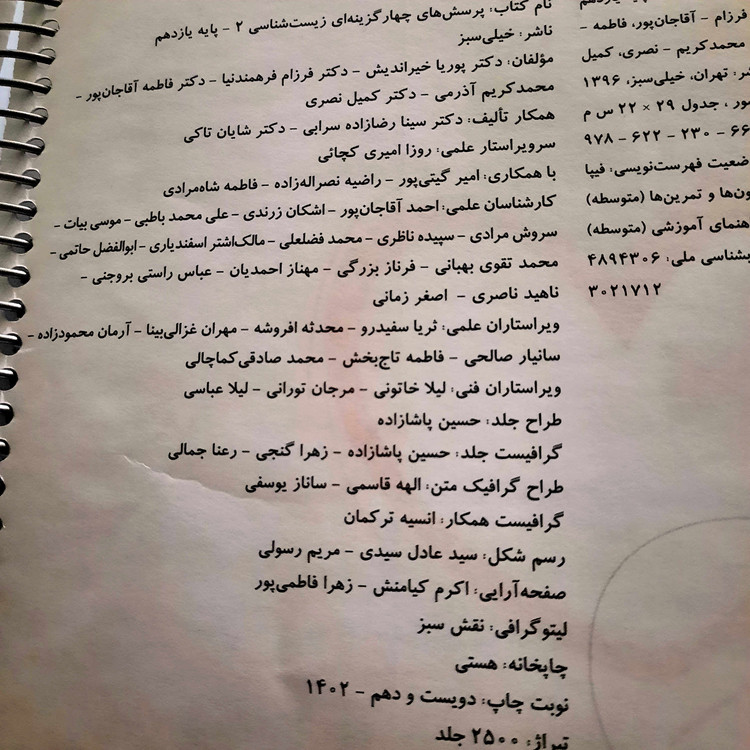 فرزام - آقاجان‌پور، فاطمه -
محمدکریم - نصری، کمیل
شر: تهران، خیلی‌سبز، ۱۳۹۶
ور ، جدول ۲۹ × ۲۲ س م
۹۷۸ - ۶۲۲ - ۲۳۰ - ۶۶
ضعیت فهرست‌نویسی: فیپا
ون‌ها و تمرین‌ها (متوسطه)
هنمای آموزشی (متوسطه)
بشناسی ملی: ۴۸۹۴۳۰۶
۳۰۲۱۷۱۲
نام کتاب: پرسش‌های چهارگزینه‌ای زیست‌شناسی ۲ - پایه یازدهم
ناشر: خیلی‌سبز
مؤلفان: دکتر پوریا خیراندیش - دکتر فرزام فرهمندنیا - دکتر فاطمه آقاجان‌پور -
محمدکریم آذرمی - دکتر کمیل نصری
همکار تألیف: دکتر سینا رضازاده سرابی - دکتر شایان تاکی
سرویراستار علمی: روزا امیری کچائی
با همکاری: امیر گیتی‌پور - راضیه نصراله‌زاده - فاطمه شاه‌مرادی
کارشناسان علمی: احمد آقاجان‌پور - اشکان زرندی - علی محمد باطبی - موسی بیات -
سروش مرادی - سپیده ناظری - محمد فضلعلی - مالک‌اشتر اسفندیاری - ابوالفضل حاتمی -
محمد تقوی بهبانی - فرناز بزرگی - مهناز احمدیان - عباس راستی بروجنی -
ناهید ناصری - اصغر زمانی
ویراستاران علمی: ثریا سفیدرو - محدثه افروشه - مهران غزالی‌بینا - آرمان محمودزاده -
سانیار صالحی - فاطمه تاج‌بخش - محمد صادقی‌کماچالی
ویراستاران فنی: لیلا خاتونی - مرجان تورانی - لیلا عباسی
طراح جلد: حسین پاشازاده
گرافیست جلد: حسین پاشازاده - زهرا گنجی - رعنا جمالی
طراح گرافیک متن: الهه قاسمی - ساناز یوسفی
گرافیست همکار: انسیه ترکمان
رسم شکل: سید عادل سیدی - مریم رسولی
صفحه‌آرایی: اکرم کیامنش - زهرا فاطمی‌پور
لیتوگرافی: نقش سبز
چاپخانه: هستی
نوبت چاپ: دویست و دهم - ۱۴۰۲
تیراژ: ۲۵۰۰ جلد